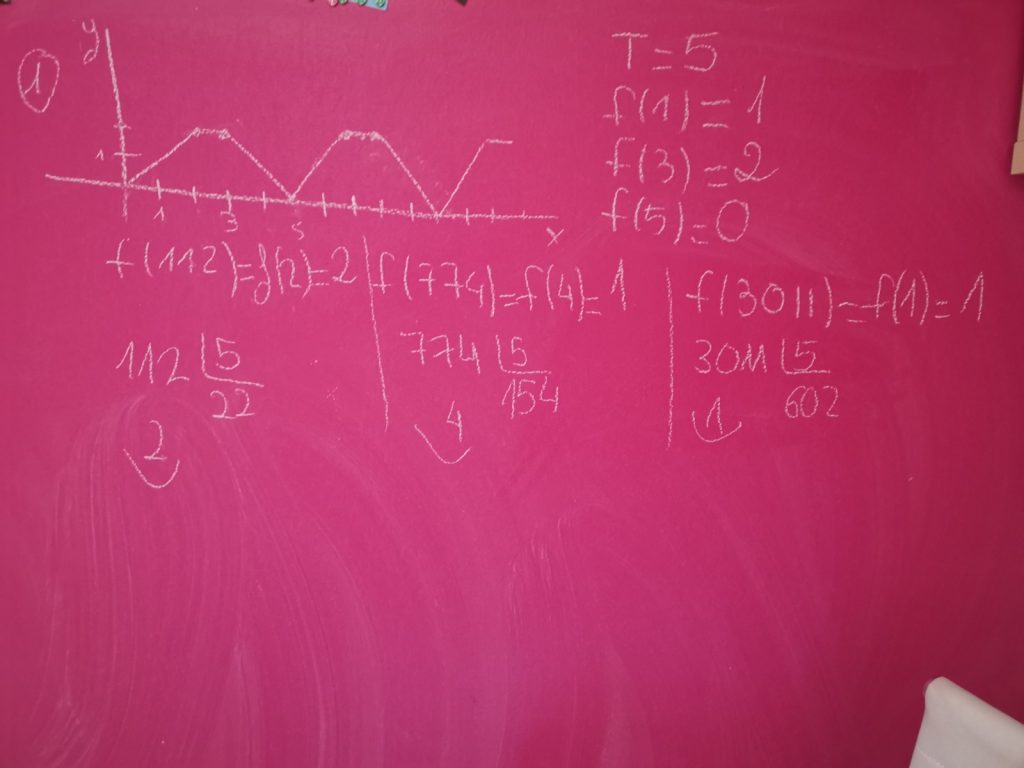 1
y
1
1
3
5
x
T = 5
f(1) = 1
f(3) = 2
f(5) = 0
f(112) = f(2) = 2
112 5
22
2
f(774) = f(4) = 1
774 5
154
4
f(3011) = f(1) = 1
3011 5
602
1